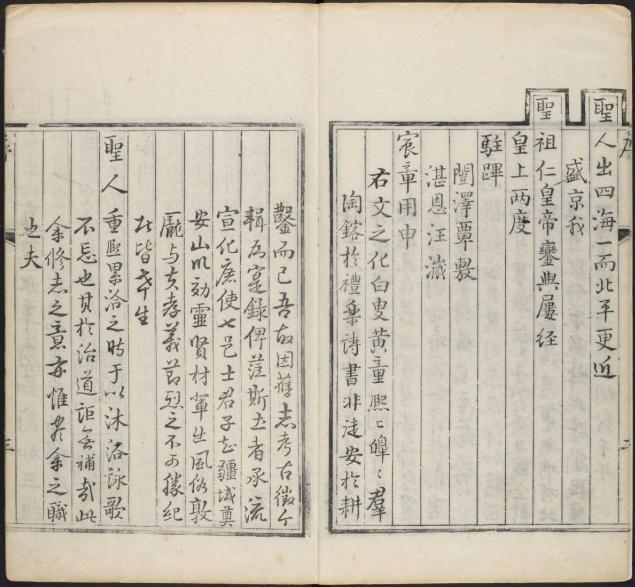 聖人出四海一而北平更近
盛京我
聖祖仁皇帝鑾輿屢經
皇上兩度
駐蹕
闓澤覃敷
湛恩汪濊
宸章用申
右文之化白叟黃童熙〻皥〻羣
陶鎔於禮樂詩書非徒安於耕
鑿而已吾故因舊志考古徵今
輯為寔錄俾蒞斯土者承流
宣化庶使七邑士君子知疆域奠
安山川効靈賢材輩生風俗敦
龐与夫孝義節烈之不可勝紀
此皆幸生
聖人重熙累洽之時于以沐浴詠歌
不忘也其於治道詎無補哉此
余修志之意亦惟盡余之職
也夫